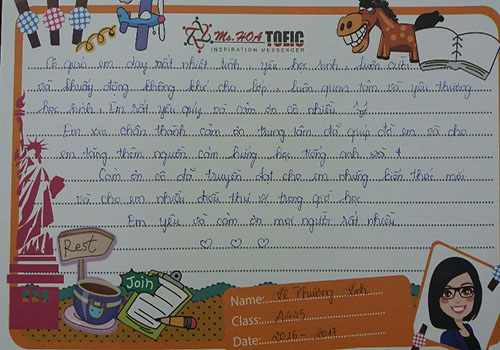 Ms.HOA TOEIC
INSPIRATION MESSENGER
Cô giáo em dạy rất nhiệt tình, yêu học sinh, luôn
và khuấy động không khí cho lớp, luôn quan tâm và yêu thương
học sinh. Em rất yêu quý và cảm ơn cô nhiều
Em xin chân thành cảm ơn trung tâm đã giúp đỡ em và cho
em tăng thêm nguồn cảm hứng học tiếng anh
Cảm ơn cô đã truyền đạt cho em những kiến thức mới
và cho em nhiều điều thú vị trong giờ học.
Em yêu và cảm ơn mọi người rất nhiều
♡ ♡ ♡
Rest
Join
Name: Phương Linh
Class:
Date: 2016 - 2017